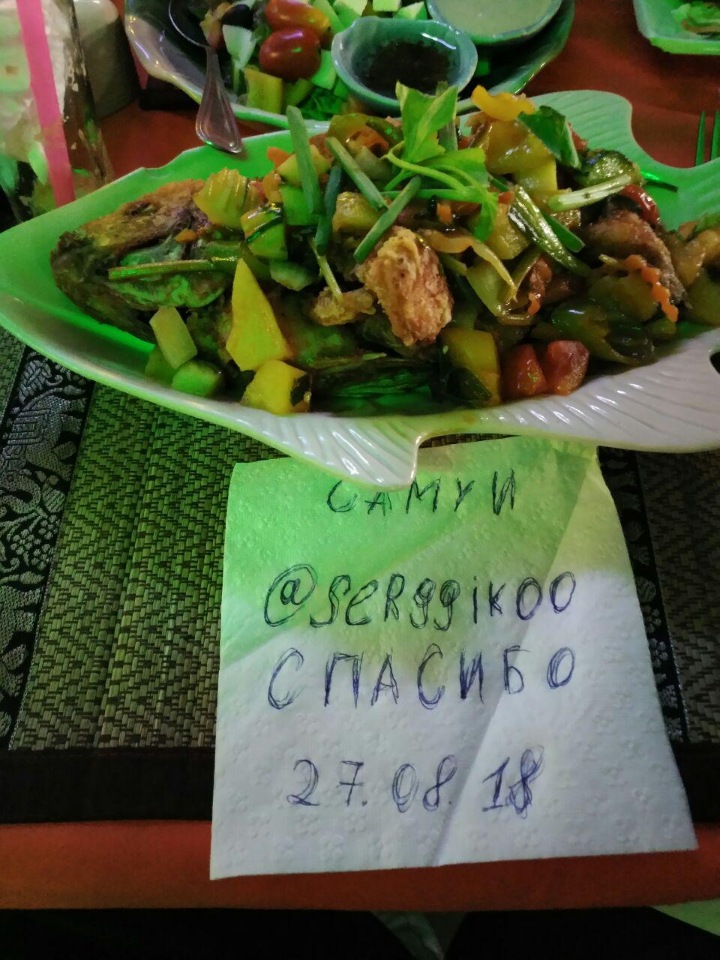 САМУИ
@SERggikoo
СПАСИБО
27.08.18